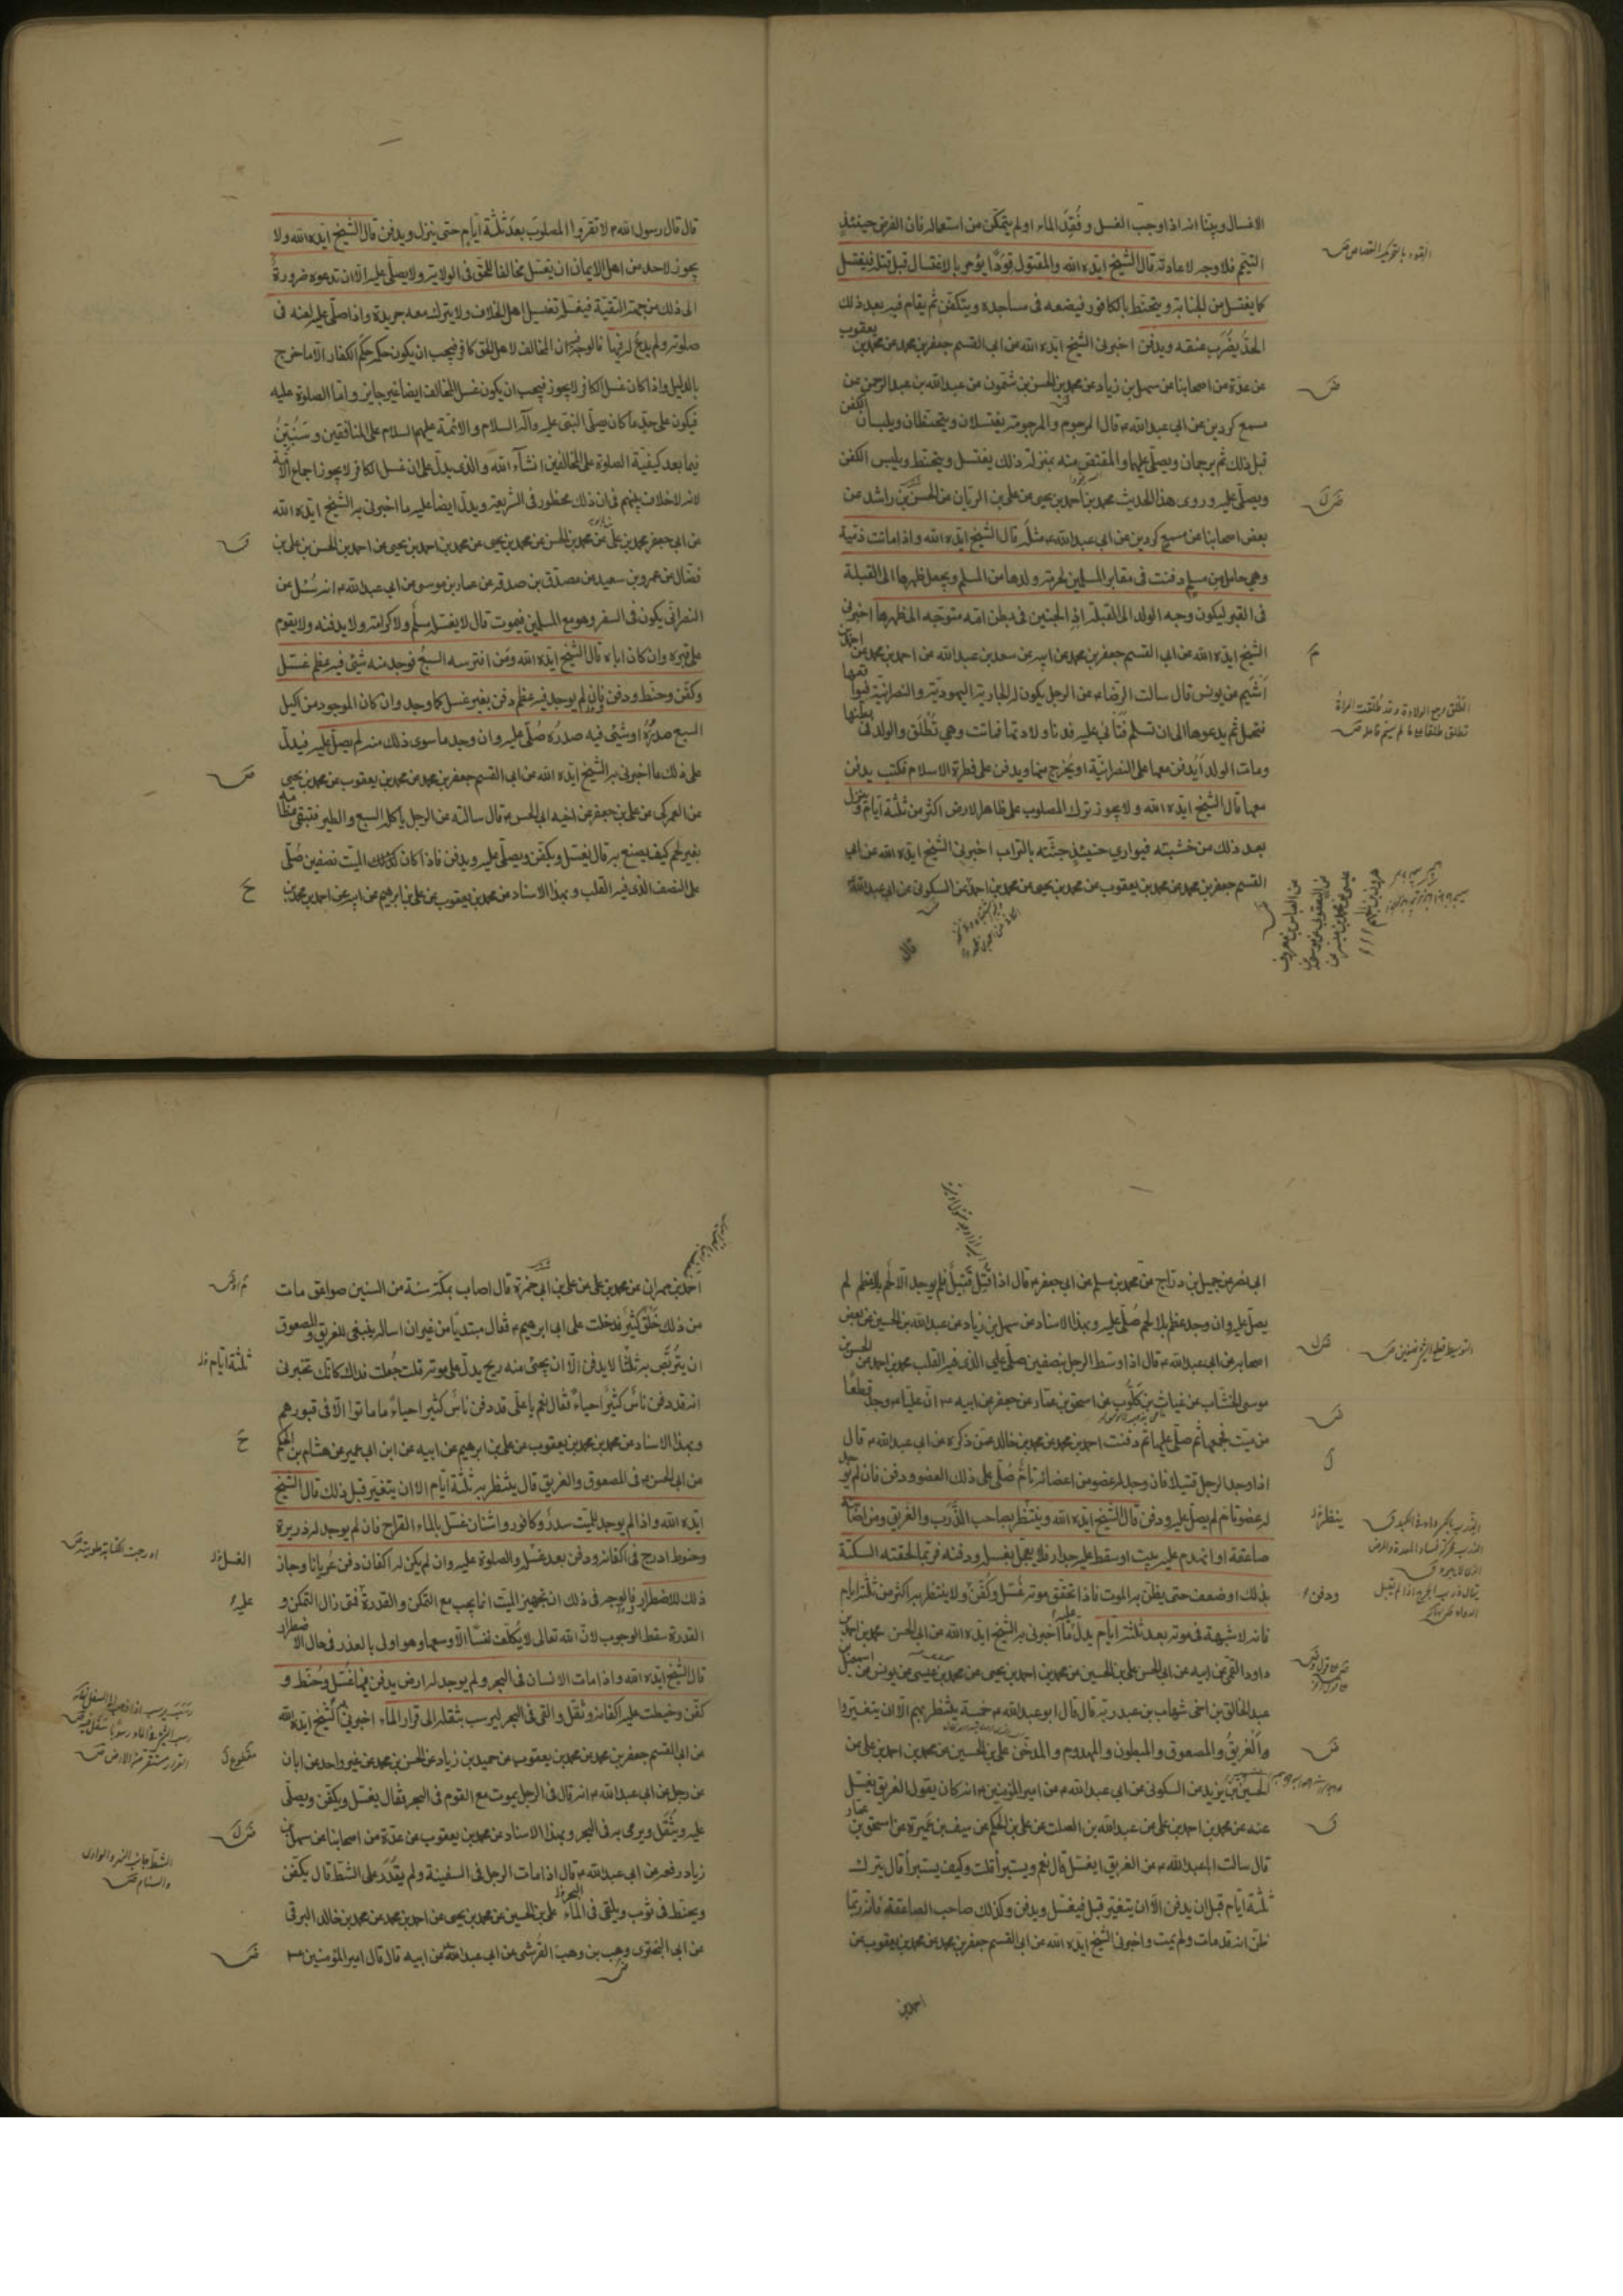 الاغسال وبيّنا انه اذا وجب الغسل و فُقِدَ الماء او لم يتمكّن من استعماله فان الفرض حينئذٍ
التيمّم فلا وجه لاعادته قال الشيخ ايّده الله والمقتول قَوَدًا يؤمر بالاغتسال قبل قتله فيغتسل
كما يغتسل من الجنابة ويتحنّط بالكافور فيضعه في مساجده ويتكفّن ثم يقام فيه بعد ذلك
الحدّ يضرب عنقه ويدفن اخبرني الشيخ ايّده الله عن ابي القسم جعفر بن محمد عن محمد بن يعقوب
عن عدّة من اصحابنا عن سهل بن زياد عن محمد بن الحسن بن شمّون عن عبدالله بن عبدالرحمن عن
مسمع كردين عن ابي عبدالله ع قال المرجوم والمرجومة يغتسلان ويتحنّطان ويلبسان الكفن
قبل ذلك ثم يرجمان ويصلّى عليهما والمقتصّ منه بمنزلة ذلك يغتسل ويتحنّط ويلبس الكفن
ويصلّى عليه وروى هذا الحديث محمد بن احمد بن يحيى عن علي بن الريّان عن الحسن بن راشد عن
بعض اصحابنا عن مسمع كردين عن ابي عبدالله ع مثله قال الشيخ ايّده الله واذا ماتت ذمّية
وهي حامل من مسلم دفنت في مقابر المسلمين لحرمة ولدها من المسلم ويجعل ظهرها الى القبلة
في القبر ليكون وجه الولد الى القبلة اذ الجنين في بطن امّه متوجّه الى ظهرها اخبرني
الشيخ ايّده الله عن ابي القسم جعفر بن محمد عن ابيه عن سعد بن عبدالله عن احمد بن محمد عن احمد بن
اَشْيَم عن يونس قال سالت الرضا ع عن الرجل يكون له الجارية اليهودية والنصرانية فيواقعها
فتحمل ثم يدعوها الى ان تسلم فتأبى عليه فدنا ولادتها فماتت وهي تُطْلَق والولد في بطنها
ومات الولد أيدفن معها على النصرانيّة او يُخرج منها ويدفن على فطرة الاسلام فكتب يدفن
معها قال الشيخ ايّده الله ولا يجوز ترك المصلوب على ظاهر الارض اكثر من ثلثة ايّام وينزل
بعد ذلك من خشبته فيوارى حينئذٍ جثّته بالتراب اخبرني الشيخ ايّده الله عن ابي
القسم جعفر بن محمد عن محمد بن يعقوب عن محمد بن يحيى عن محمد بن احمد عن السكوني عن ابي عبدالله ع
قال
القود بالتحريك القصاص ص
قال قال رسول الله ص لا تقرّوا المصلوب بعد ثلثة ايّام حتى ينزل ويدفن قال الشيخ ايّده الله ولا
يجوز لاحد من اهل الايمان ان يغسّل مخالفا للحق في الولاية ولا يصلّي عليه الّا ان تدعوه ضرورةٌ
الى ذلك من جهة التقيّة فيغسله تغسيل اهل الخلاف ولا يترك معه جريدة واذا صلّى عليه لعنه في
صلوته ولم يدعُ له فيها فالوجه فيه ان المخالف لاهل الحق كافر فيجب ان يكون حكمه حكم الكفار الّا ما خرج
بالدليل واذا كان غسل الكافر لا يجوز فيجب ان يكون غسل المخالف ايضا غير جايز واما الصلوة عليه
فيكون على حدّ ما كان يصلّي النبي عليه وآله السلام والائمة عليهم السلام على المنافقين وسنبيّن
فيما بعد كيفية الصلوة على المخالفين انشآء الله والذي يدلّ على ان غسل الكافر لا يجوز اجماع الامّة
لانه لا خلاف بينهم في ان ذلك محظور في الشريعة ويدلّ ايضا عليه ما اخبرني به الشيخ ايّده الله
عن ابي جعفر محمد بن علي عن محمد بن الحسن عن محمد بن يحيى عن محمد بن احمد بن يحيى عن احمد بن الحسن بن علي بن
فضّال عن عمرو بن سعيد عن مصدّق بن صدقة عن عمار بن موسى عن ابي عبدالله ع انه سُئل عن
النصراني يكون في السفر وهو مع المسلمين فيموت قال لا يغسله مسلم ولا كرامة ولا يدفنه ولا يقوم
على قبره وان كان اباه قال الشيخ ايّده الله ومَن افترسه السبعُ فوجد منه شئ فيه عظم غسّل
وكفّن وحنّط ودفن فان لم يوجد فيه عظم دفن بغير غسل كما وجد وان كان الموجود من اكيل
السبع صدرُه او شئ فيه صدره صُلّي عليه وان وجد ما سوى ذلك منه لم يصلّ عليه فيدلّ
على ذلك ما اخبرني به الشيخ ايّده الله عن ابي القسم جعفر بن محمد عن محمد بن يعقوب عن محمد بن يحيى
عن العمركي عن علي بن جعفر عن اخيه ابي الحسن ع قال سالته عن الرجل ياكله السبع والطير فتبقى عظامه
بغير لحم كيف يصنع به قال يغسّل ويكفّن ويصلّى عليه ويدفن فاذا كان الميّت نصفين صُلّي
على النصف الذي فيه القلب وبهذا الاسناد عن محمد بن يعقوب عن علي بن ابرهيم عن ابيه عن احمد بن محمد بن
ابي نصر عن جميل بن درّاج عن محمد بن مسلم عن ابي جعفر ع قال اذا قُتِلَ قَتِيلٌ فلم يوجد الّا لحم بلا عظم لم
يصلّ عليه وان وجد عظم بلا لحم صُلّي عليه وبهذا الاسناد عن سهل بن زياد عن عبدالله بن الحسين عن بعض
اصحابه عن ابي عبدالله ع قال اذا وسّط الرجل بنصفين صلّي على الذي فيه القلب محمد بن احمد عن الحسن بن
موسى الخشّاب عن غياث بن كلّوب عن اسحق بن عمّار عن جعفر عن ابيه ع انّ عليّا ع وجد قطعًا
من ميّت فجمعها ثم صلّى عليها ثم دفنت احمد بن محمد عن محمد بن خالد عمّن ذكره عن ابي عبدالله ع قال
اذا وجد الرجل قتيلا فان وجد له عضو من اعضائه تامّ صُلّي على ذلك العضو ودفن فان لم يوجد
له عضو تام لم يصلّ عليه ودفن قال الشيخ ايّده الله وينتظر بصاحب الذَّرَب والغريق ومن اصابته
صاعقة او انهدم عليه بيت او سقط عليه جدار فلا يعجل بغسله ودفنه فربما لحقته السكتة
بذلك او ضعف حتى يظنّ به الموت فاذا تحقق موته غُسّل وكُفّن ولا ينتظر به اكثر من ثلثة ايام
فانه لا شبهة في موته بعد ثلثة ايام يدلّ عليه ما اخبرني به الشيخ ايّده الله عن ابي الحسن محمد بن احمد بن
داود القمي عن ابيه عن ابي الحسن علي بن الحسين عن محمد بن احمد بن يحيى عن محمد بن عيسى عن يونس عن اسمعيل بن
عبدالخالق بن اخي شهاب بن عبدربّه قال قال ابو عبدالله ع خمسة ينتظر بهم الّا ان يتغيّروا
الغريقُ والمصعوق والمبطون والمهدوم والمدخّن علي بن الحسين عن محمد بن احمد بن علي عن
الحسين بن يزيد عن السكوني عن ابي عبدالله ع عن امير المؤمنين ع انه كان يقول الغريق يغسّل
عنه عن محمد بن احمد بن علي عن عبدالله بن الصلت عن علي بن الحكم عن سيف بن عَمِيرة عن اسحق بن عمار
قال سالت ابا عبدالله ع عن الغريق ايغسّل قال نعم ويستبرأ قلت وكيف يستبرأ قال يترك
ثلثة ايّام قبل ان يدفن الّا ان يتغيّر قبل فيغسّل ويدفن وكذلك صاحب الصاعقة فانه ربّما
ظنّ انه قد مات ولم يمت واخبرني الشيخ ايّده الله عن ابي القسم جعفر بن محمد عن محمد بن يعقوب عن
احمد بن
ينتظر
ودفن
احمد بن مهران عن محمد بن علي عن علي بن ابي حمزة قال اصاب بمكّة سنة من السنين صواعق مات
من ذلك خلق كثير فدخلت على ابي ابرهيم ع فقال مبتديًا من غير ان اساله ينبغي للغريق والمصعوق
ان يتربّص به ثلثًا لا يدفن الّا ان يجئ منه ريح يدلّ على موته قلت جُعلت فداك كانّك تخبرني
انه قد دفن ناس كثيرٌ احياءً فقال نعم يا علي قد دفن ناس كثير احياءً ما ماتوا الّا في قبورهم
وبهذا الاسناد عن محمد بن يعقوب عن علي بن ابرهيم عن ابيه عن ابن ابي عمير عن هشام بن الحكم
عن ابي الحسن ع في المصعوق والغريق قال ينتظر به ثلثة ايّام الا ان يتغيّر قبل ذلك قال الشيخ
ايّده الله واذا لم يوجد للميّت سدر وكافور واشنان غسّل بالماء القراح فان لم يوجد له ذريرة
وحنوط ادرج في اكفانه ودفن بعد غسله والصلوة عليه وان لم يكن له اكفان دفن عُريانا وجاز
ذلك للاضطرار فالوجه في ذلك ان تجهيز الميّت انما يجب مع التمكّن والقدرة فمتى زال التمكّن و
القدرة سقط الوجوب لانّ الله تعالى لا يكلّف نفسًا الّا وسعها وهو اولى بالعذر في حال الاضطرار
قال الشيخ ايّده الله واذا مات الانسان في البحر ولم يوجد له ارض يدفن فيها غُسّل وحُنّط و
كفّن وخيطت عليه اكفانه وثقّل والقي في البحر ليرسب بثقله الى قرار الماء اخبرني الشيخ ايّده الله
عن ابي القسم جعفر بن محمد عن محمد بن يعقوب عن حميد بن زياد عن الحسن بن محمد عن غير واحد عن ابان
عن رجل عن ابي عبدالله ع انه قال في الرجل يموت مع القوم في البحر فقال يغسّل ويكفّن ويصلّى
عليه ويثقّل ويرمى به في البحر وبهذا الاسناد عن محمد بن يعقوب عن عدّة من اصحابنا عن سهل بن
زياد رفعه عن ابي عبدالله ع قال اذا مات الرجل في السفينة ولم يقدر على الشطّ قال يكفّن
ويحنّط في ثوب ويلقى في الماء علي بن الحسين عن محمد بن يحيى عن احمد بن محمد عن محمد بن خالد البرقي
عن ابي البختري وهب بن وهب القرشي عن ابي عبدالله ع عن ابيه قال قال امير المؤمنين ع
ثلثة ايام
الغسل
عليه